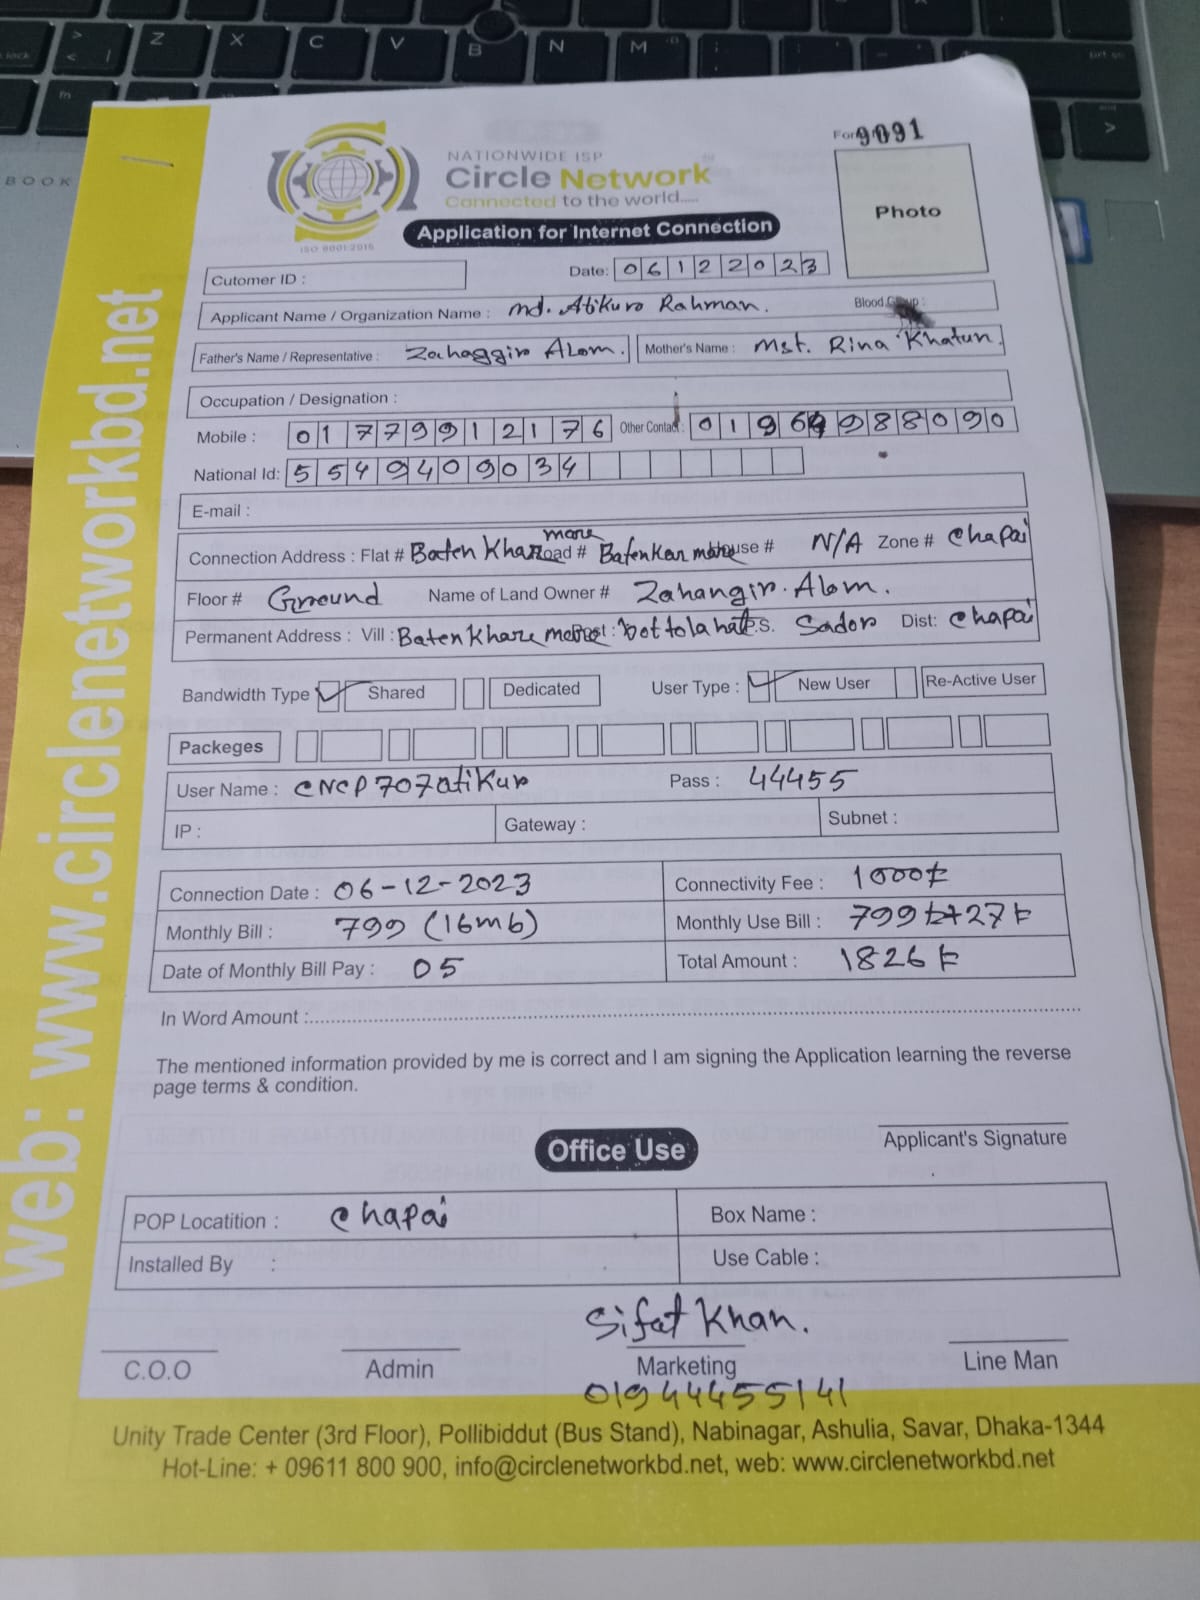 Form
9091
NATIONWIDE ISP
Circle Network
Connected to the world.....
ISO 9001:2015
Application for Internet Connection
Photo
Cutomer ID :
Date: 06122023
Applicant Name / Organization Name : Md. Atikur Rahman.
Blood Group :
Father's Name / Representative : Zahaggir Alom.
Mother's Name : Mst. Rina Khatun.
Occupation / Designation :
Mobile : 01779912176 Other Contact :
National Id: 5549409034
E-mail :
Connection Address : Flat # Baten Khar more Road # Batenkar more House # N/A Zone # Chapai
Floor # Ground Name of Land Owner # Zahangir. Alom.
Permanent Address : Vill : Baten Khare more Post : bottolahat P.S. Sador Dist: Chapai
Bandwidth Type Shared Dedicated User Type : New User Re-Active User
Packeges
User Name : CNCP707atikur Pass : 44455
IP : Gateway : Subnet :
Connection Date : 06-12-2023 Connectivity Fee : 1000৳
Monthly Bill : 799 (16mb) Monthly Use Bill : 799৳+27৳
Date of Monthly Bill Pay : 05 Total Amount : 1826৳
In Word Amount :
The mentioned information provided by me is correct and I am signing the Application learning the reverse
page terms & condition.
Applicant's Signature
Office Use
POP Locatition : Chapai Box Name :
Installed By : Use Cable :
Sifat Khan.
C.O.O Admin Marketing Line Man
01944455141
Unity Trade Center (3rd Floor), Pollibiddut (Bus Stand), Nabinagar, Ashulia, Savar, Dhaka-1344
Hot-Line: + 09611 800 900, info@circlenetworkbd.net, web: www.circlenetworkbd.net
web: www.circlenetworkbd.net
Z X C V B N M
fn
BOOK